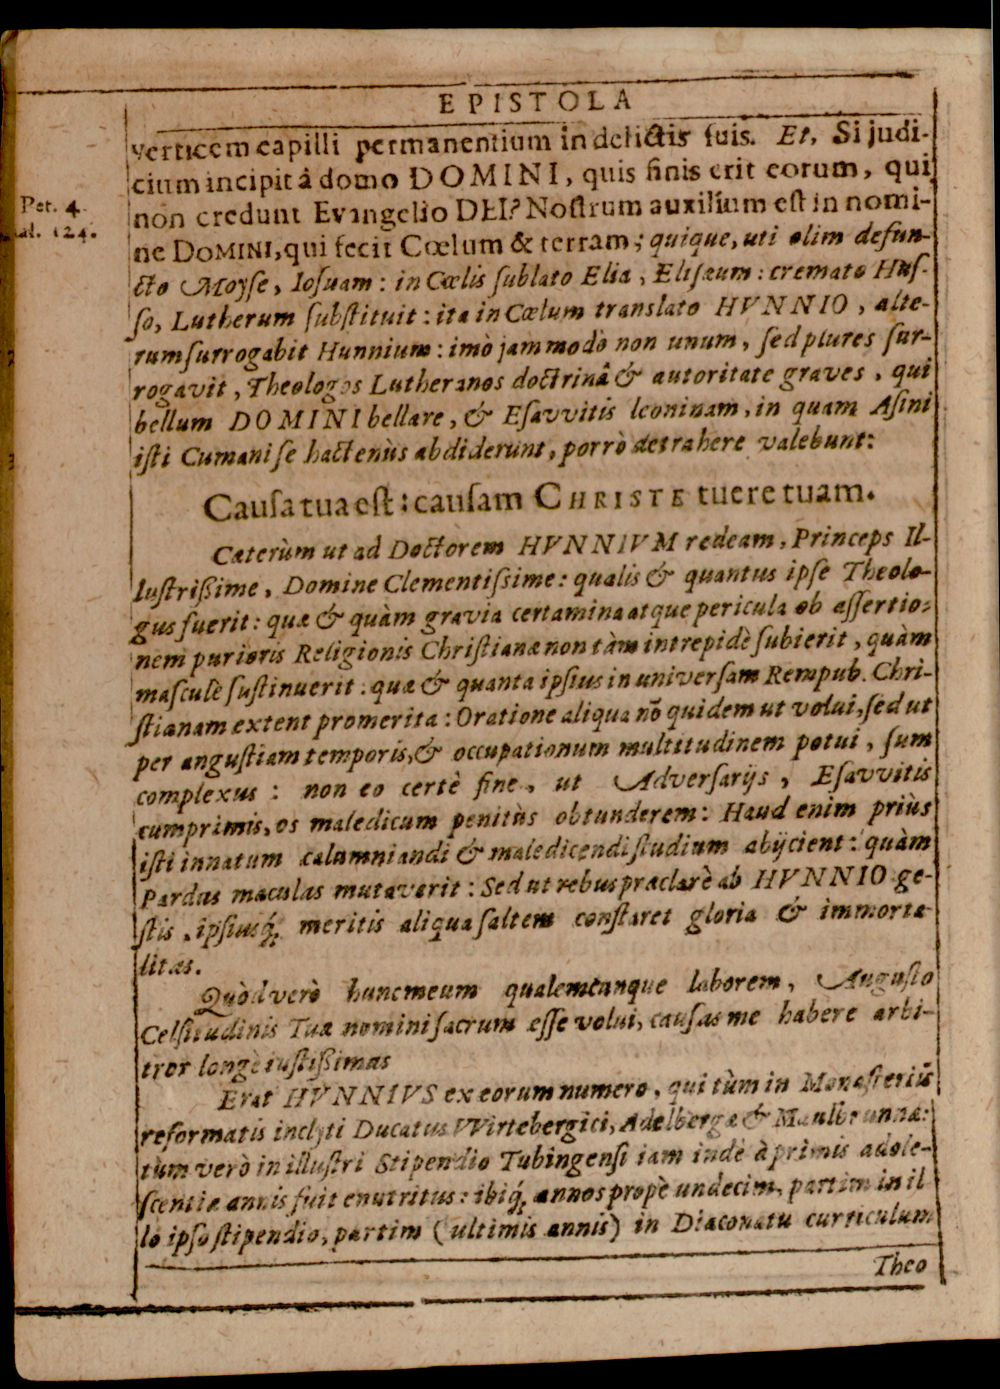 EPISTOLA
verticem capilli permanentium in delictis suis. Et, Si judi-
cium incipit â domo DOMINI, quis finis erit eorum, qui
Pet. 4.
non credunt Evangelio DEI? Nostrum auxilium est in nomi-
al. 124.
ne DOMINI, qui fecit Cœlum & terram; quique, uti olim defun-
cto Moyse, Iosuam: in Cœlis sublato Elia, Elisæum: cremato Hus-
so, Lutherum substituit: ita in Cœlum translato HVNNIO, alte-
rum surrogabit Hunnium: imò jam modò non unum, sed plures sur-
rogavit, Theologos Lutheranos doctrinâ & autoritate graves, qui
bellum DOMINI bellare, & Esavvitis leoninam, in quam Asini
isti Cumani se hactenùs abdiderunt, porrò detrahere valebunt:
Causa tua est: causam CHRISTE tuere tuam.
Cæterùm ut ad Doctorem HVNNIVM redeam, Princeps Il-
lustrißime, Domine Clementissime: qualis & quantus ipse Theolo-
gus fuerit: quæ & quàm gravia certamina atque pericula ob assertio-
nem purioris Religionis Christianæ non tàm intrepidè subierit, quàm
masculè sustinuerit: quæ & quanta ipsius in universam Rempub. Chri-
stianam extent promerita: Oratione aliqua nō quidem ut volui, sed ut
per angustiam temporis, & occupationum multitudinem potui, sum
complexus: non eo certè fine, ut Adversarijs, Esavvitis
cumprimis, os maledicum penitùs obtunderem: Haud enim priùs
isti innatum calumniandi & maledicendi studium abijcient: quàm
Pardus maculas mutaverit: Sed ut rebus præclarè ab HVNNIO ge-
stis, ipsiusq́; meritis aliqua saltem constaret gloria & immorta-
litas.
Quòd verò hunc meum qualemcunque laborem, Augusto
Celsitudinis Tuæ nomini sacrum esse volui, causas me habere arbi-
tror longè iustißimas
Erat HVNNIVS ex eorum numero, qui tùm in Monasterijs
reformatis inclyti Ducatus VVirtebergici, Adelbergæ & Maulbrunnæ:
tùm verò in illustri Stipendio Tubingensi iam indè à primis adole-
scentiæ annis fuit enutritus: ibiq́; annos propè undecim, partim in il
lo ipso stipendio, partim (ultimis annis) in Diaconatu curriculum
Theo